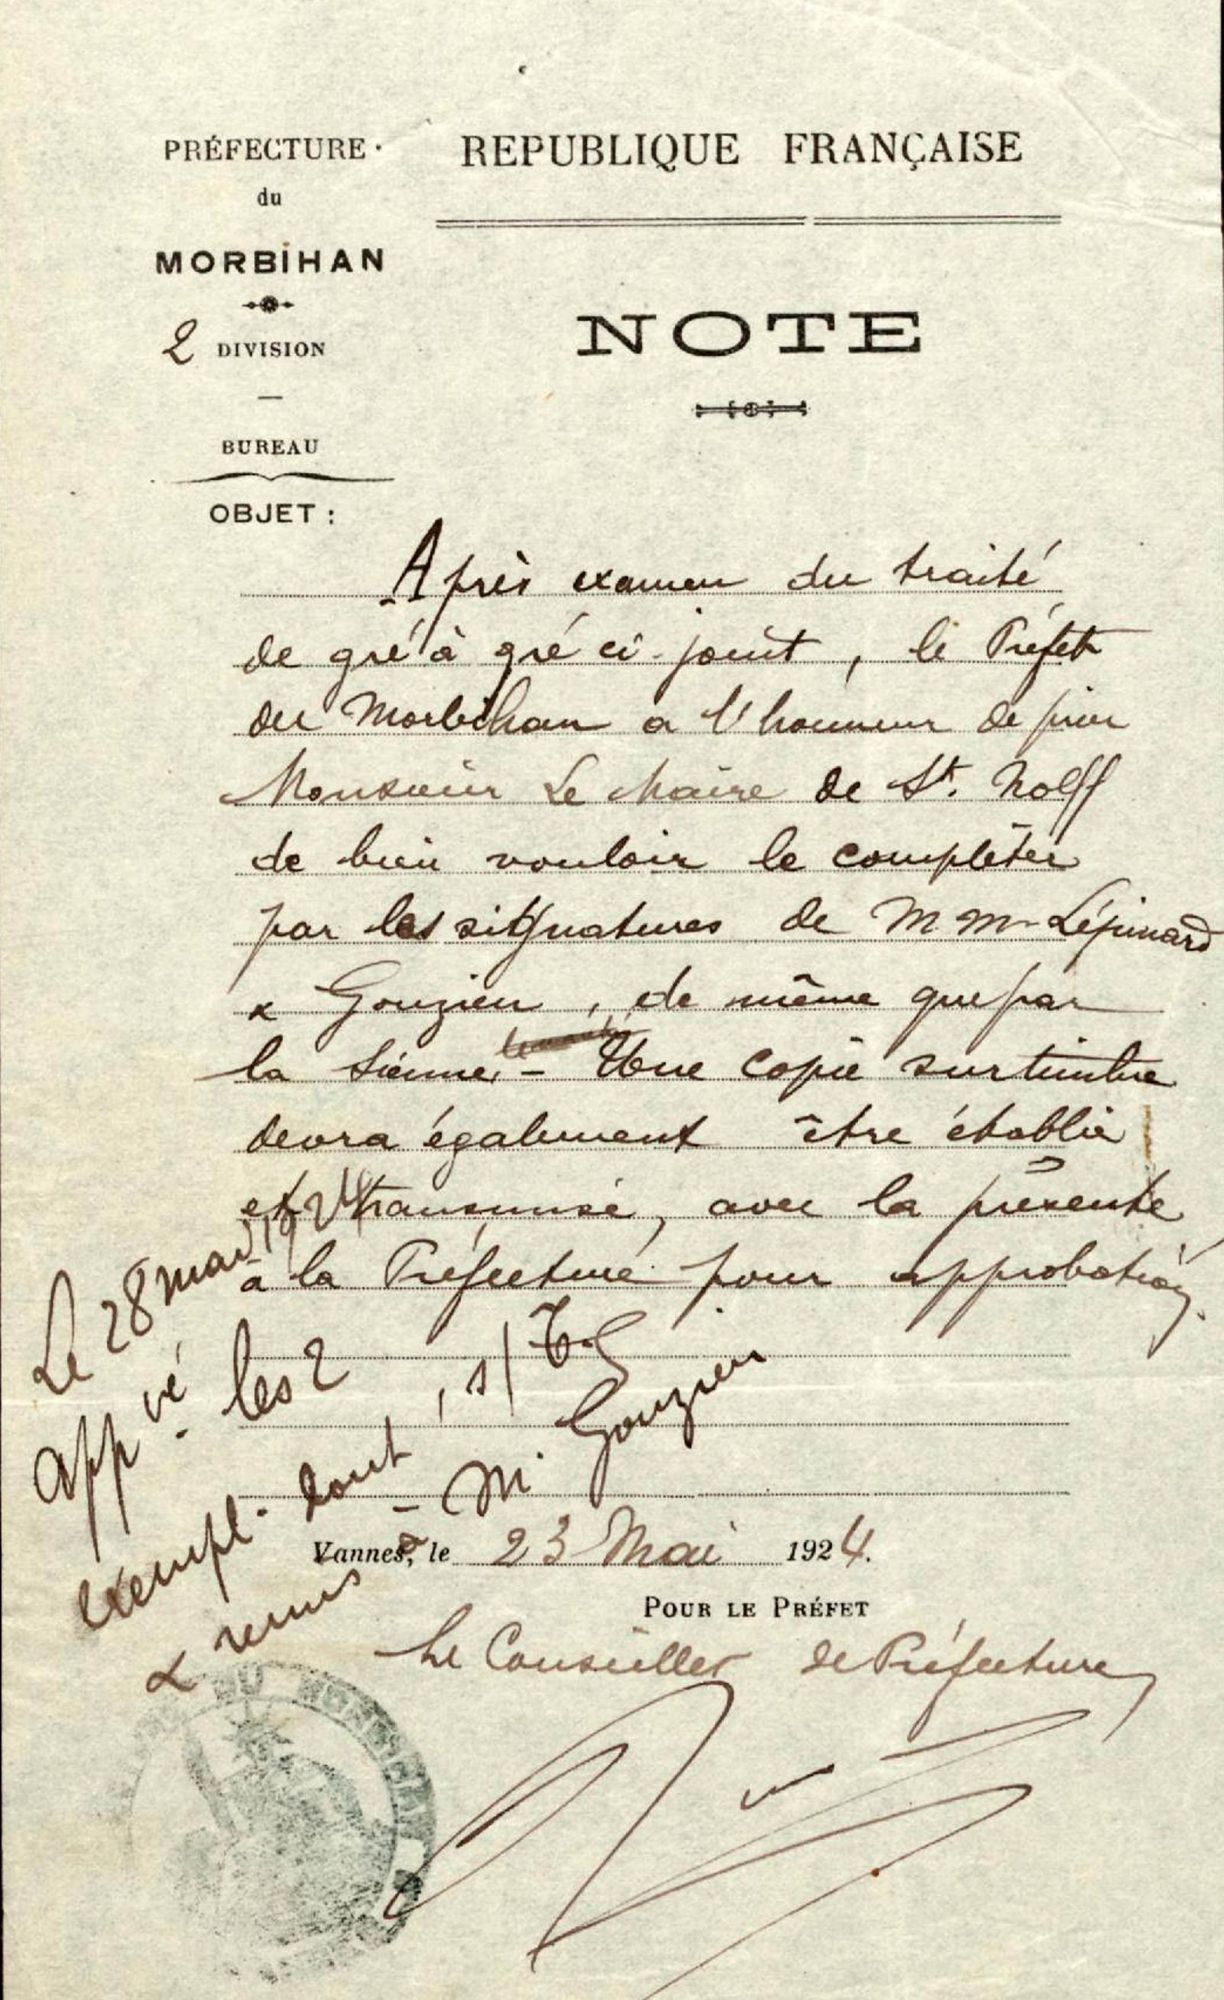 PRÉFECTURE
du
MORBIHAN
2 DIVISION
BUREAU
OBJET :
REPUBLIQUE FRANÇAISE
NOTE
Après examen du traité
de gré à gré ci-joint, le Préfet
du Morbihan a l'honneur de prier
Monsieur Le Maire de St. Nolff
de bien vouloir le compléter
par les signatures de M M. Lépinard
& Gouzien, de même que par
la sienne - Une copie sur timbre
devra également être établie
et transmise, avec la présente
à la Préfecture pour approbation.
Le 28 mai 1924
appvé les 2
exempl. dont 1 s/ T.
& remis à M. Gouzien
Vannes, le 23 Mai 1924.
POUR LE PRÉFET
Le Conseiller de Préfecture,
DU MORBIHAN